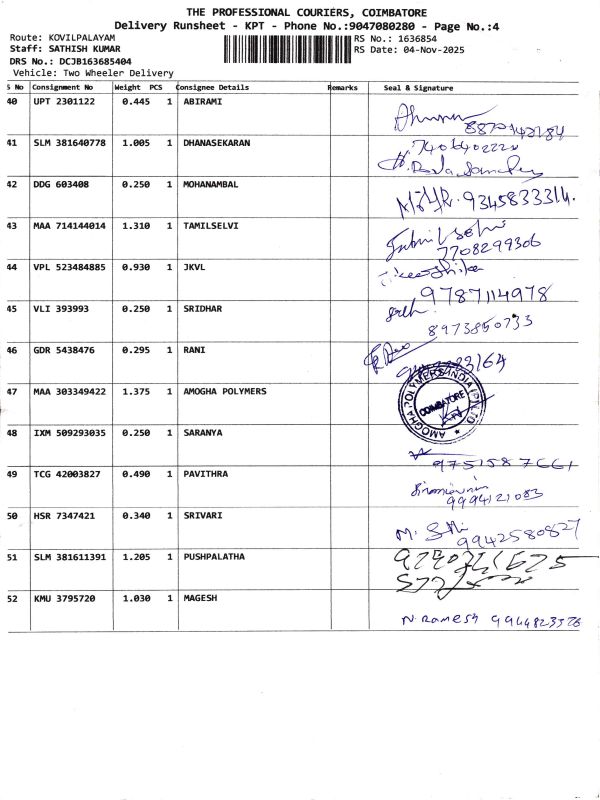 THE PROFESSIONAL COURIERS, COIMBATORE
Delivery Runsheet - KPT - Phone No.:9047080280 - Page No.:4
Route: KOVILPALAYAM
RS No.: 1636854
Staff: SATHISH KUMAR
RS Date: 04-Nov-2025
DRS No.: DCJB163685404
Vehicle: Two Wheeler Delivery
S No Consignment No Weight PCS Consignee Details Remarks Seal & Signature
40 UPT 2301122 0.445 1 ABIRAMI
41 SLM 381640778 1.005 1 DHANASEKARAN
42 DDG 603408 0.250 1 MOHANAMBAL
9345833314.
43 MAA 714144014 1.310 1 TAMILSELVI
7708299306
44 VPL 523484885 0.930 1 JKVL
9787114978
45 VLI 393993 0.250 1 SRIDHAR
8973850733
46 GDR 5438476 0.295 1 RANI
47 MAA 303349422 1.375 1 AMOGHA POLYMERS
AMOGHA POLYMERS INDIA (P) LTD
COIMBATORE
48 IXM 509293035 0.250 1 SARANYA
9751587661
49 TCG 42003827 0.490 1 PAVITHRA
9994121083
50 HSR 7347421 0.340 1 SRIVARI
9942580827
51 SLM 381611391 1.205 1 PUSHPALATHA
52 KMU 3795720 1.030 1 MAGESH
N. Ramesh 9944823376